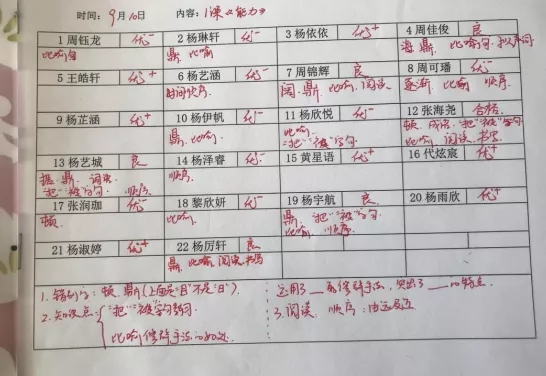 时间：9月10日 内容：1课《能力》
1 周钰龙 优- 2 杨琳轩 优- 3 杨依依 优+ 4 周佳俊 良
比喻句 鼎 比喻 鼎 比喻句
5 王皓轩 优+ 6 杨艺涵 优- 7 周锦辉 良 8 周可璠 优-
时间顺序 阔 鼎 比喻 阅读 逐渐 比喻 顺序
9 杨芷涵 优+ 10 杨伊帆 优- 11 杨欣悦 优- 12 张海尧 合格
鼎 比喻 比喻 "把""被"字句 顿 成语 "把""被"字句
比喻 阅读 书写
13 杨艺城 良 14 杨泽睿 优- 15 黄星语 优+ 16 代炫宸 优+
鼎 词语 顺序
"把""被"字句 顺序
17 张润珈 优- 18 黎欣妍 优- 19 杨宇航 良 20 杨雨欣 优+
顿 比喻 鼎 "把""被"字句
比喻 顺序
21 杨淑婷 优+ 22 杨厉轩 良
鼎 比喻 阅读 书写
1. 错别字：顿、鼎(上面是"目"不是"日")
2. 知识点："把""被"字句转句
比喻修辞手法的好处
运用了__的修辞手法，突出了__的特点
3. 阅读 顺序：由远及近